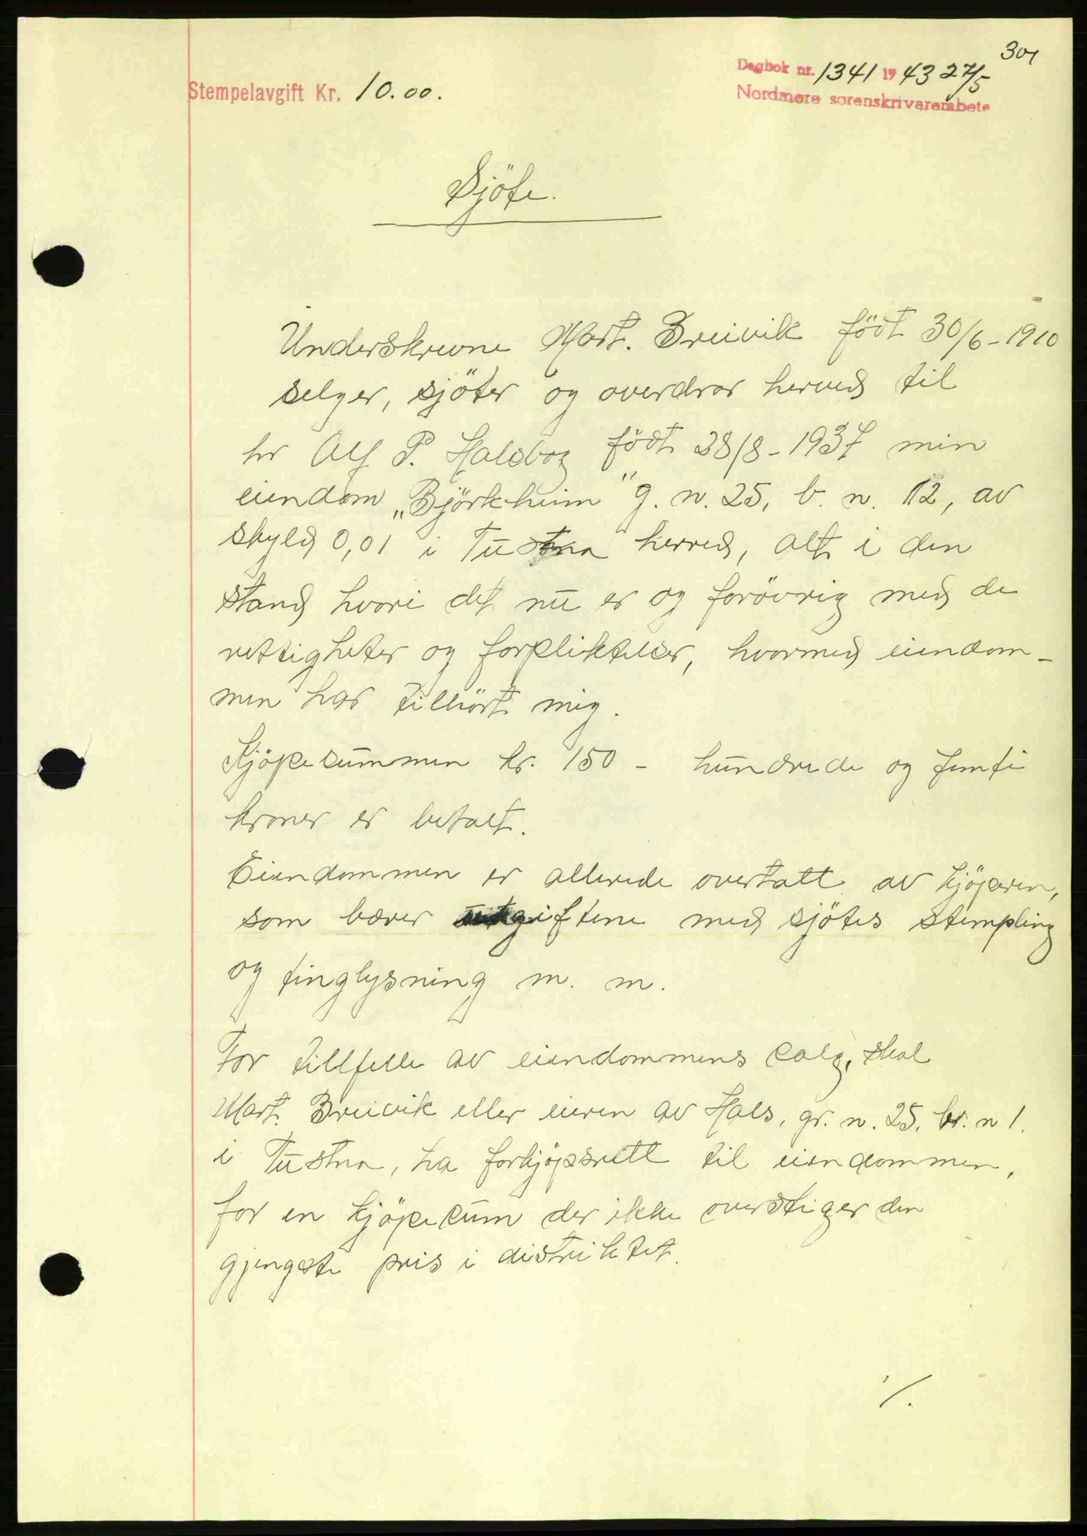 301
Stempelavgift Kr. 10.00.
Dagbok nr. 1341 1943 27/5
Nordmøre sorenskriverembete
Sjöte.
Underskrevne Mart. Breivik født 30/6-1910
selger, sjöter og overdrar herved til
hr Alf P. Halsbog födt 28/8-1937 min
eiendom „Björkheim" g. n. 25, b. n. 12, av
skyld 0,01 i Tustna herred, alt i den
stand hvori det nu er og forövrig med de
rettigheter og forpliktelser, hvormed eiendom-
men har tilhört mig.
Kjöpesummen kr. 150 - hundrede og femti
kroner er betalt.
Eiendommen er allerede overtatt av kjöperen,
som bærer utgiftene med sjötes stempling
og tinglysning m. m.
For tillfelle av eiendommens salg, skal
Mart. Breivik eller eieren av Hals, gr. n. 25, br. n 1.
i Tustna, ha forkjöpsrett til eiendommen,
for en kjöpesum der ikke overstiger den
gjengste pris i distriktet.
./.